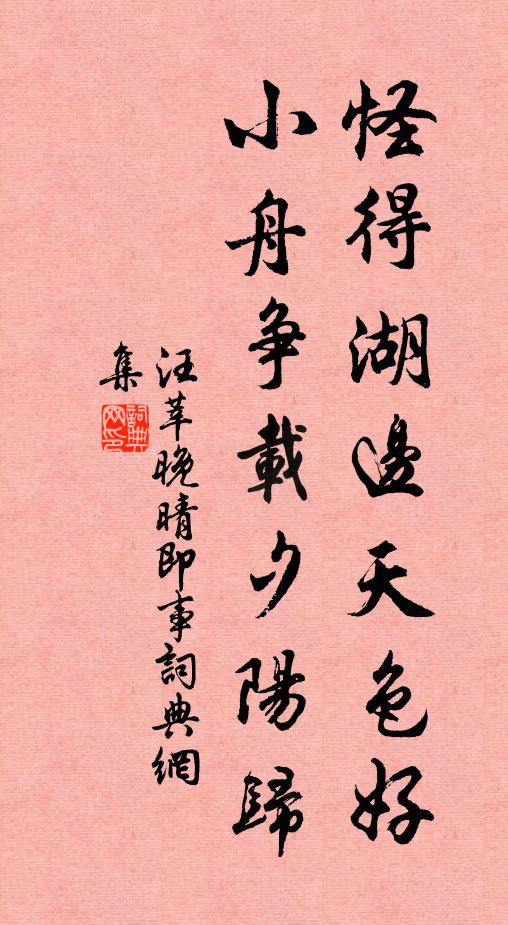 怪得湖邊天色好
小舟爭載夕陽歸
汪莘晚晴即事詞典網
集
詞典
网印